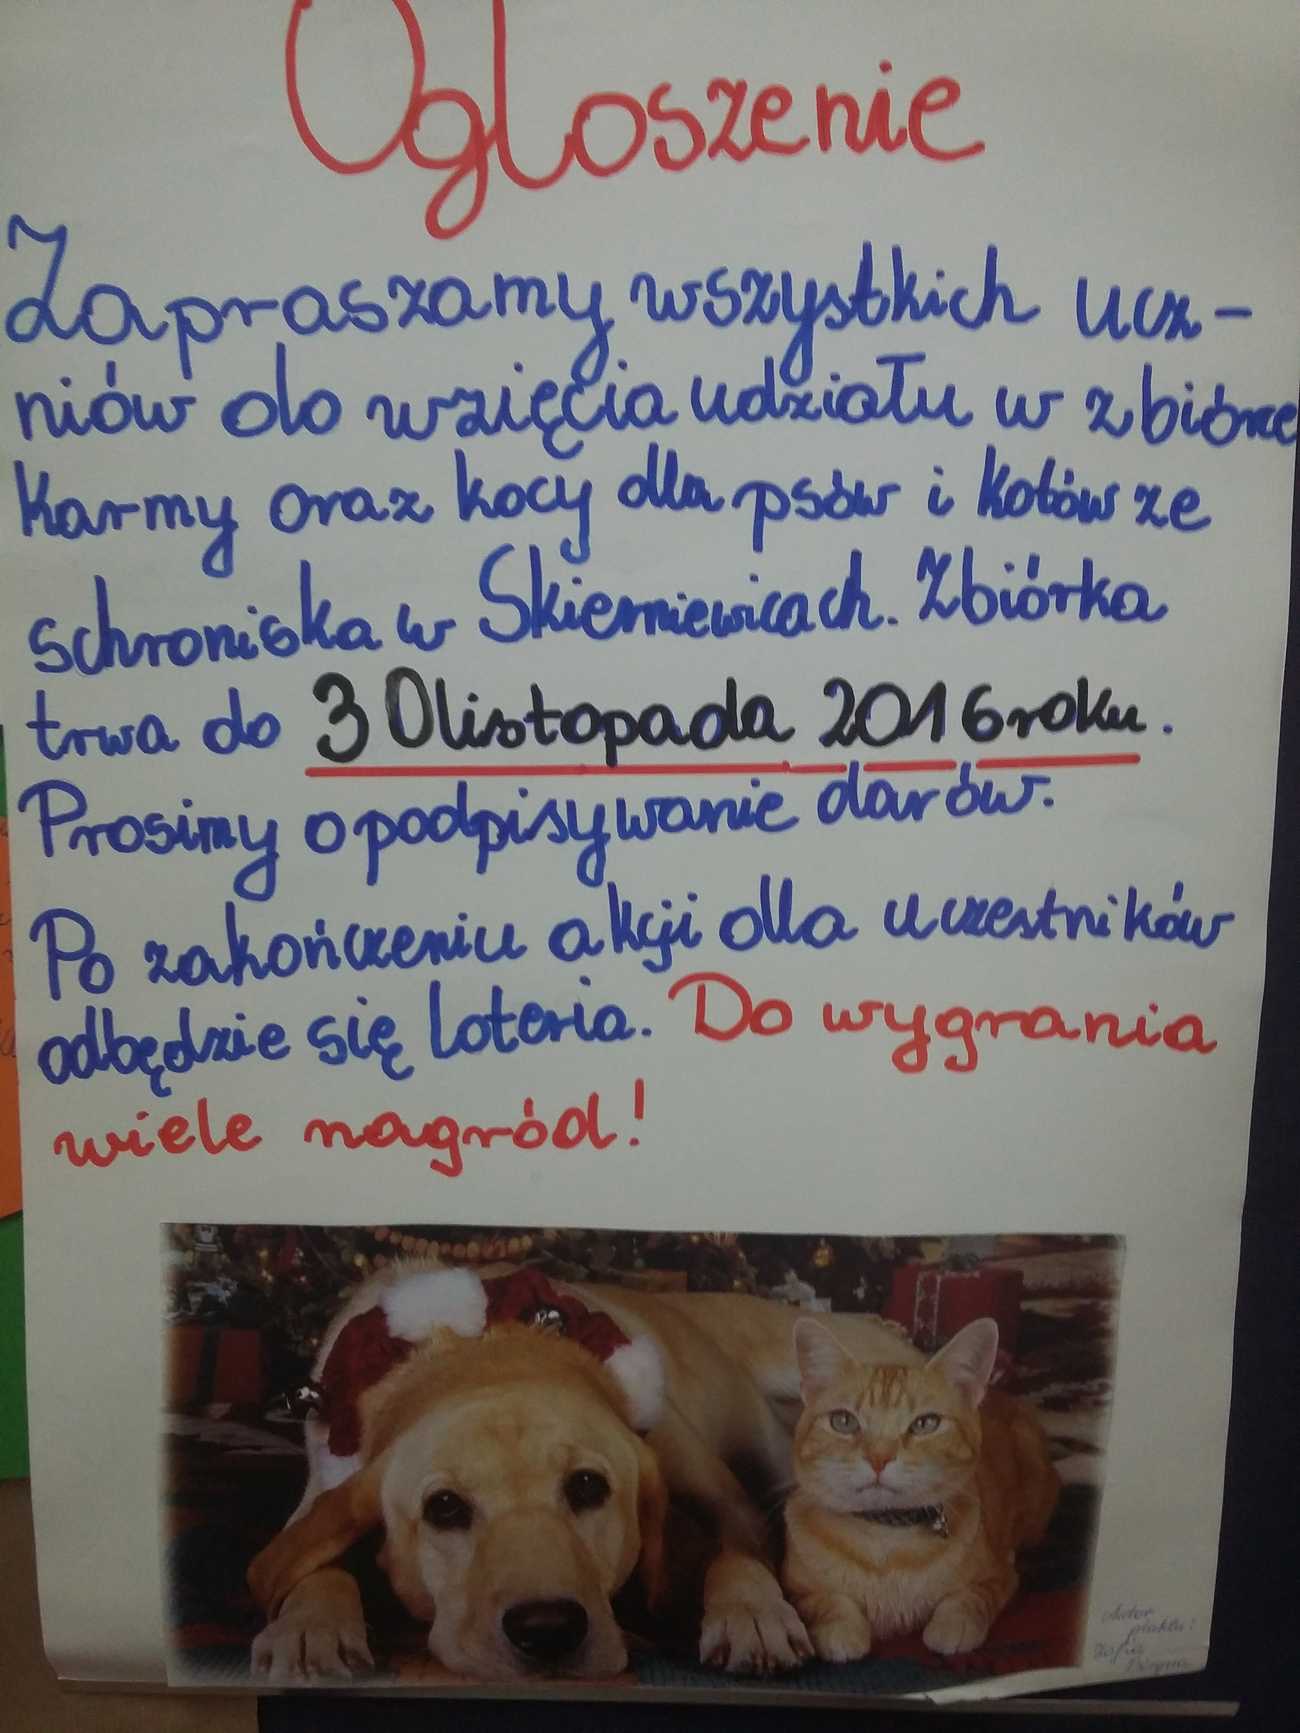 Ogloszenie
Zapraszamy wszystkich ucz-
niów do wzięcia udziału w zbiórce
karmy oraz kocy dla psów i kotów ze
schroniska w Skierniewicach. Zbiórka
trwa do 30 listopada 2016 roku.
Prosimy o podpisywanie darów.
Po zakończeniu akcji dla uczestników
odbędzie się loteria. Do wygrania
wiele nagród!
Autor
plakatu:
Zofia